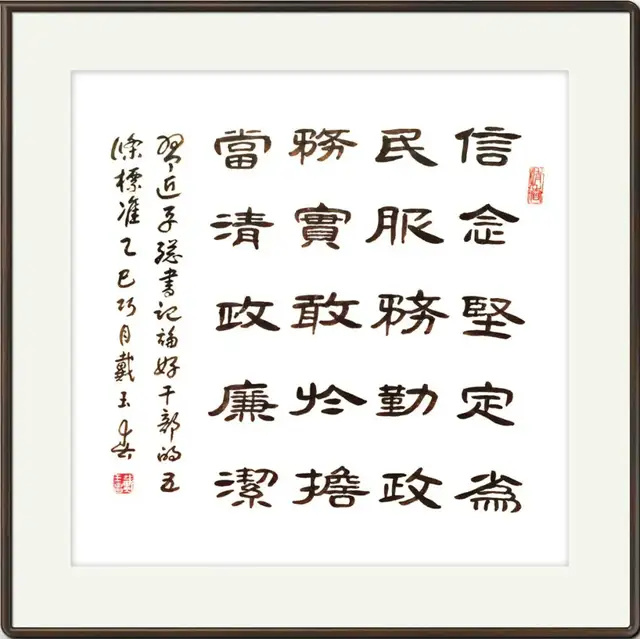 信念堅定為
民服務勤政
務實敢於擔
當清政廉潔
習近平總書記論好干部的五
條標准乙巳巧月戴玉春